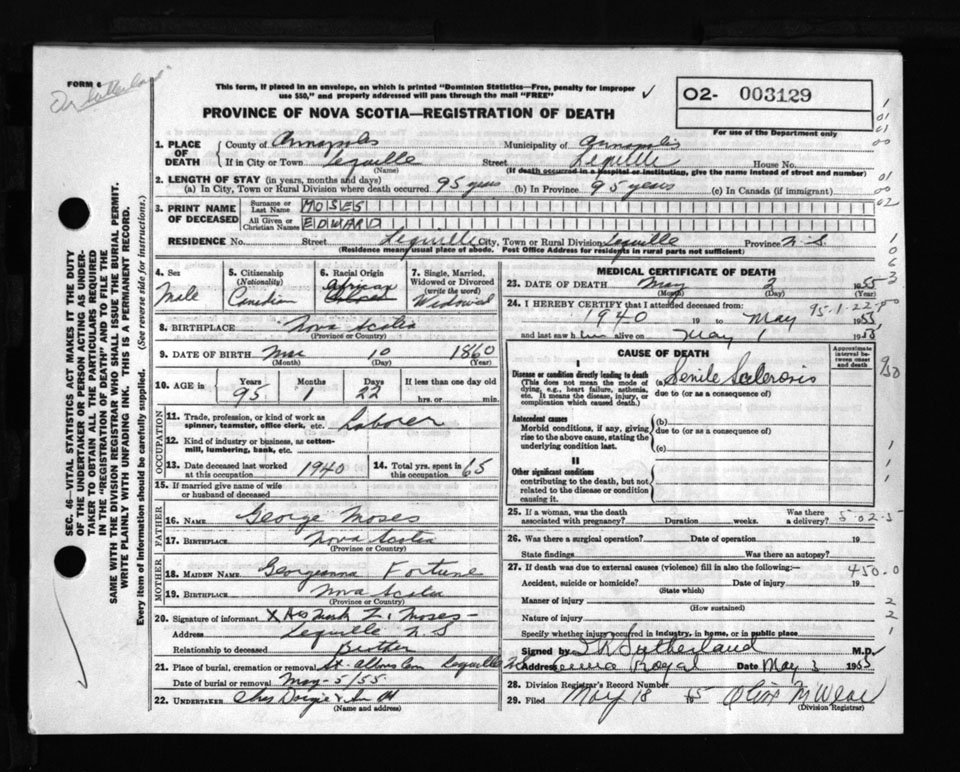 FORM 6
Dr Sutherland
This form, if placed in an envelope, on which is printed "Dominion Statistics—Free, penalty for improper
use $50," and properly addressed will pass through the mail "FREE"
PROVINCE OF NOVA SCOTIA—REGISTRATION OF DEATH
O2- 003129
For use of the Department only
1. PLACE OF DEATH County of Annapolis Municipality of Annapolis
If in City or Town Lequille Street Lequille House No.
(Name) (If death occurred in a hospital or institution, give the name instead of street and number)
2. LENGTH OF STAY (in years, months and days)
(a) In City, Town or Rural Division where death occurred 95 years (b) In Province 95 years (c) In Canada (if immigrant)
3. PRINT NAME OF DECEASED
Surname or Last Name MOSES
All Given or Christian Names EDWARD
RESIDENCE No. Street Lequille City, Town or Rural Division Lequille Province N.S.
(Residence means usual place of abode. Post Office Address for residents in rural parts not sufficient)
4. Sex Male
5. Citizenship (Nationality) Canadian
6. Racial Origin African
7. Single, Married, Widowed or Divorced (write the word) Widowed
8. BIRTHPLACE Nova Scotia
(Province or Country)
9. DATE OF BIRTH Mar 10 1860
(Month) (Day) (Year)
10. AGE in Years 95 Months 1 Days 22 If less than one day old
hrs. or min.
OCCUPATION
11. Trade, profession, or kind of work as
spinner, teamster, office clerk, etc. Laborer
12. Kind of industry or business, as cotton-
mill, lumbering, bank, etc.
13. Date deceased last worked at this occupation 1940 14. Total yrs. spent in this occupation 65
15. If married give name of wife
or husband of deceased
FATHER
16. NAME George Moses
17. BIRTHPLACE Nova Scotia
(Province or Country)
MOTHER
18. MAIDEN NAME Georgeanna Fortune
19. BIRTHPLACE Nova Scotia
(Province or Country)
20. Signature of informant X His Mark Moses
Address Lequille N S
Relationship to deceased Brother
21. Place of burial, cremation or removal St. Albans Cem Lequille
Date of burial or removal May-5/55
22. UNDERTAKER
(Name and address)
MEDICAL CERTIFICATE OF DEATH
23. DATE OF DEATH May 2 1955
(Month) (Day) (Year)
24. I HEREBY CERTIFY that I attended deceased from:
95-1-22
1940 19 to May 1955
and last saw him alive on May 1 1955
CAUSE OF DEATH
Approximate interval between onset and death
I
Disease or condition directly leading to death
(This does not mean the mode of dying, e.g., heart failure, asthenia, etc. It means the disease, injury, or complication which caused death.)
(a) Senile Sclerosis
due to (or as a consequence of)
Antecedent causes
Morbid conditions, if any, giving rise to the above cause, stating the underlying condition last.
(b)
due to (or as a consequence of)
(c)
II
Other significant conditions
contributing to the death, but not related to the disease or condition causing it.
25. If a woman, was the death associated with pregnancy? Duration weeks. Was there a delivery? 5-02-5
26. Was there a surgical operation? Date of operation 19
State findings Was there an autopsy?
27. If death was due to external causes (violence) fill in also the following:—
450.0
Accident, suicide or homicide? Date of injury 19
(State which)
Manner of injury
(How sustained)
Nature of injury
Specify whether injury occurred in industry, in home, or in public place
Signed by Sutherland M.D.
Address Royal Date May 3 1955
28. Division Registrar's Record Number
29. Filed May 18 55
(Division Registrar)
SEC. 46—VITAL STATISTICS ACT MAKES IT THE DUTY
OF THE UNDERTAKER OR PERSON ACTING AS UNDER-
TAKER TO OBTAIN ALL THE PARTICULARS REQUIRED
IN THE "REGISTRATION OF DEATH" AND TO FILE THE
SAME WITH THE DIVISION REGISTRAR WHO SHALL ISSUE THE BURIAL PERMIT.
WRITE PLAINLY WITH UNFADING INK. THIS IS A PERMANENT RECORD.
Every item of information should be carefully supplied. (See reverse side for instructions.)